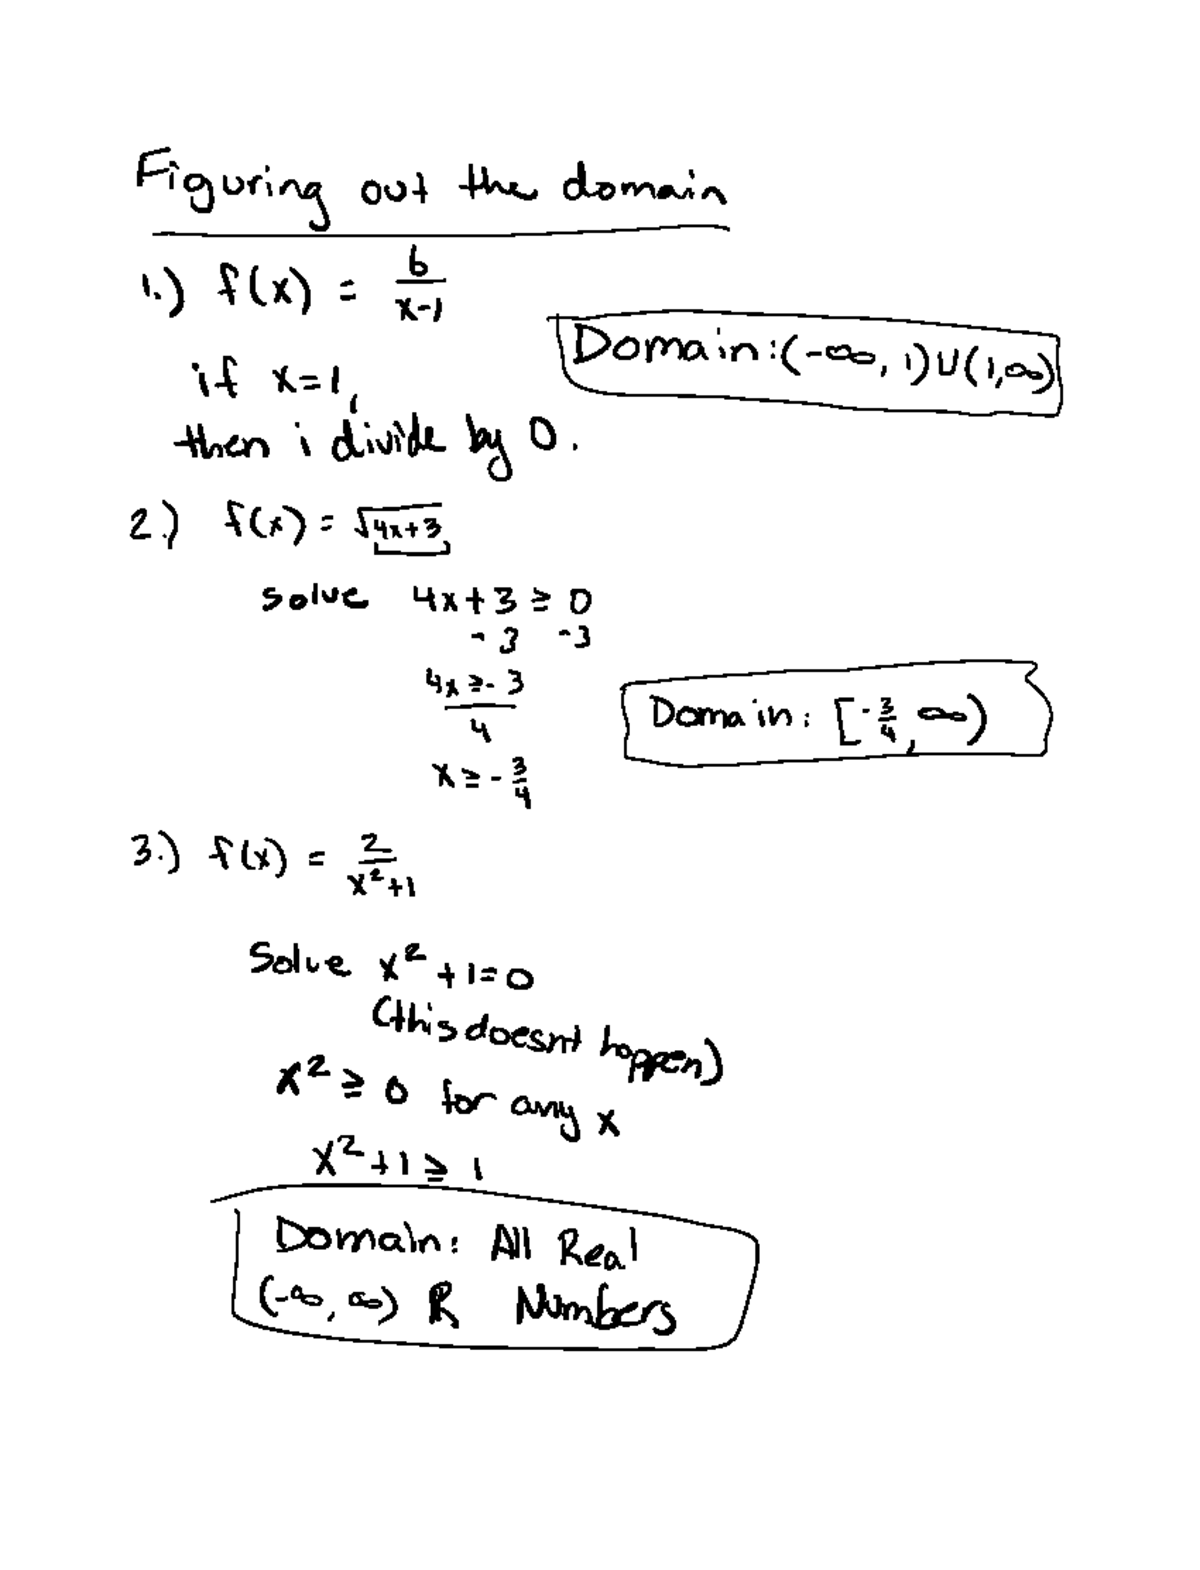 Figuring out the domain
1.) f(x) = 6/(x-1)
Domain: (-∞, 1) ∪ (1, ∞)
if x=1,
then i divide by 0.
2.) f(x) = √(4x+3)
solve 4x+3 ≥ 0
-3 -3
4x ≥ -3
4
Domain: [-3/4, ∞)
x ≥ -3/4
3.) f(x) = 2/(x²+1)
Solve x²+1=0
(this doesnt happen)
x² ≥ 0 for any x
x²+1 ≥ 1
Domain: All Real
(-∞, ∞) ℝ Numbers